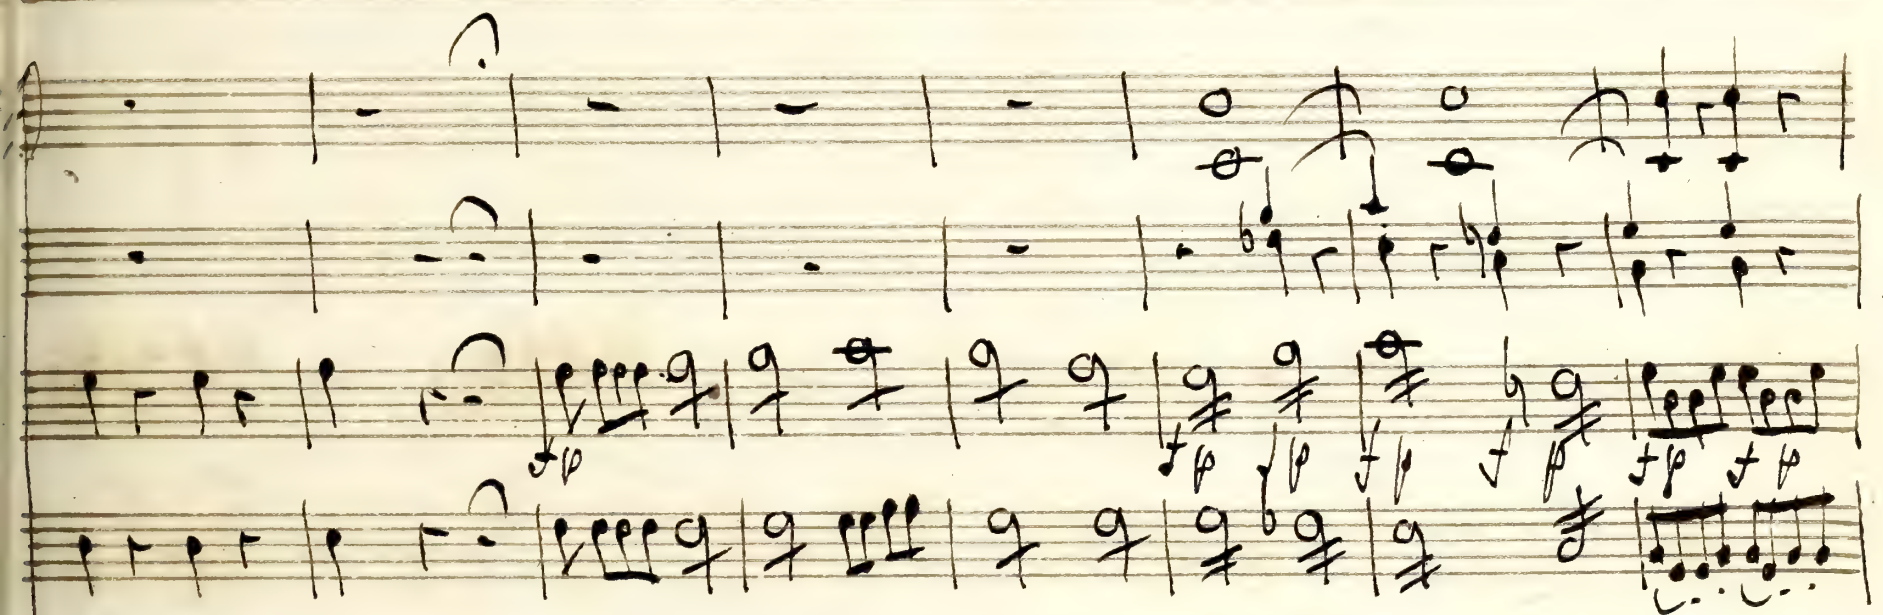 fp fp fp fp f p fp fp